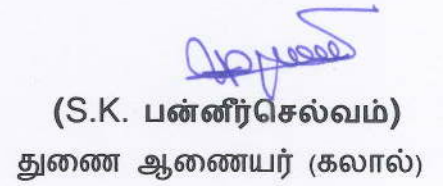 (S.K. பன்னீர்செல்வம்)
துணை ஆணையர் (கலால்)